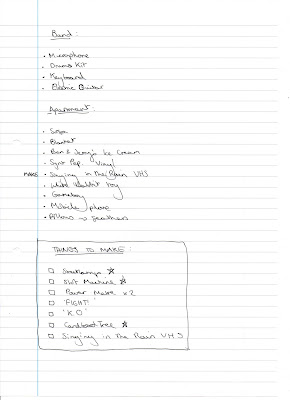 Band:
• Microphone
• Drums Kit
• Keyboard
• Electric Guitar
Apartment:
• Sofa
• Blanket
• Ben & Jerry's Ice Cream
• Synth Pop Vinyl
MAKE • Singing in the Rain VHS
• White Rabbit toy
• Gameboy
• Mobile phone
• Pillows → feathers
THINGS TO MAKE:
☐ ☆
☐ Slot Machine ☆
☐ Power Masks x2
☐ 'FIGHT!'
☐ 'K.O'
☐ Cardboard Tree ☆
☐ Singing in the Rain VHS